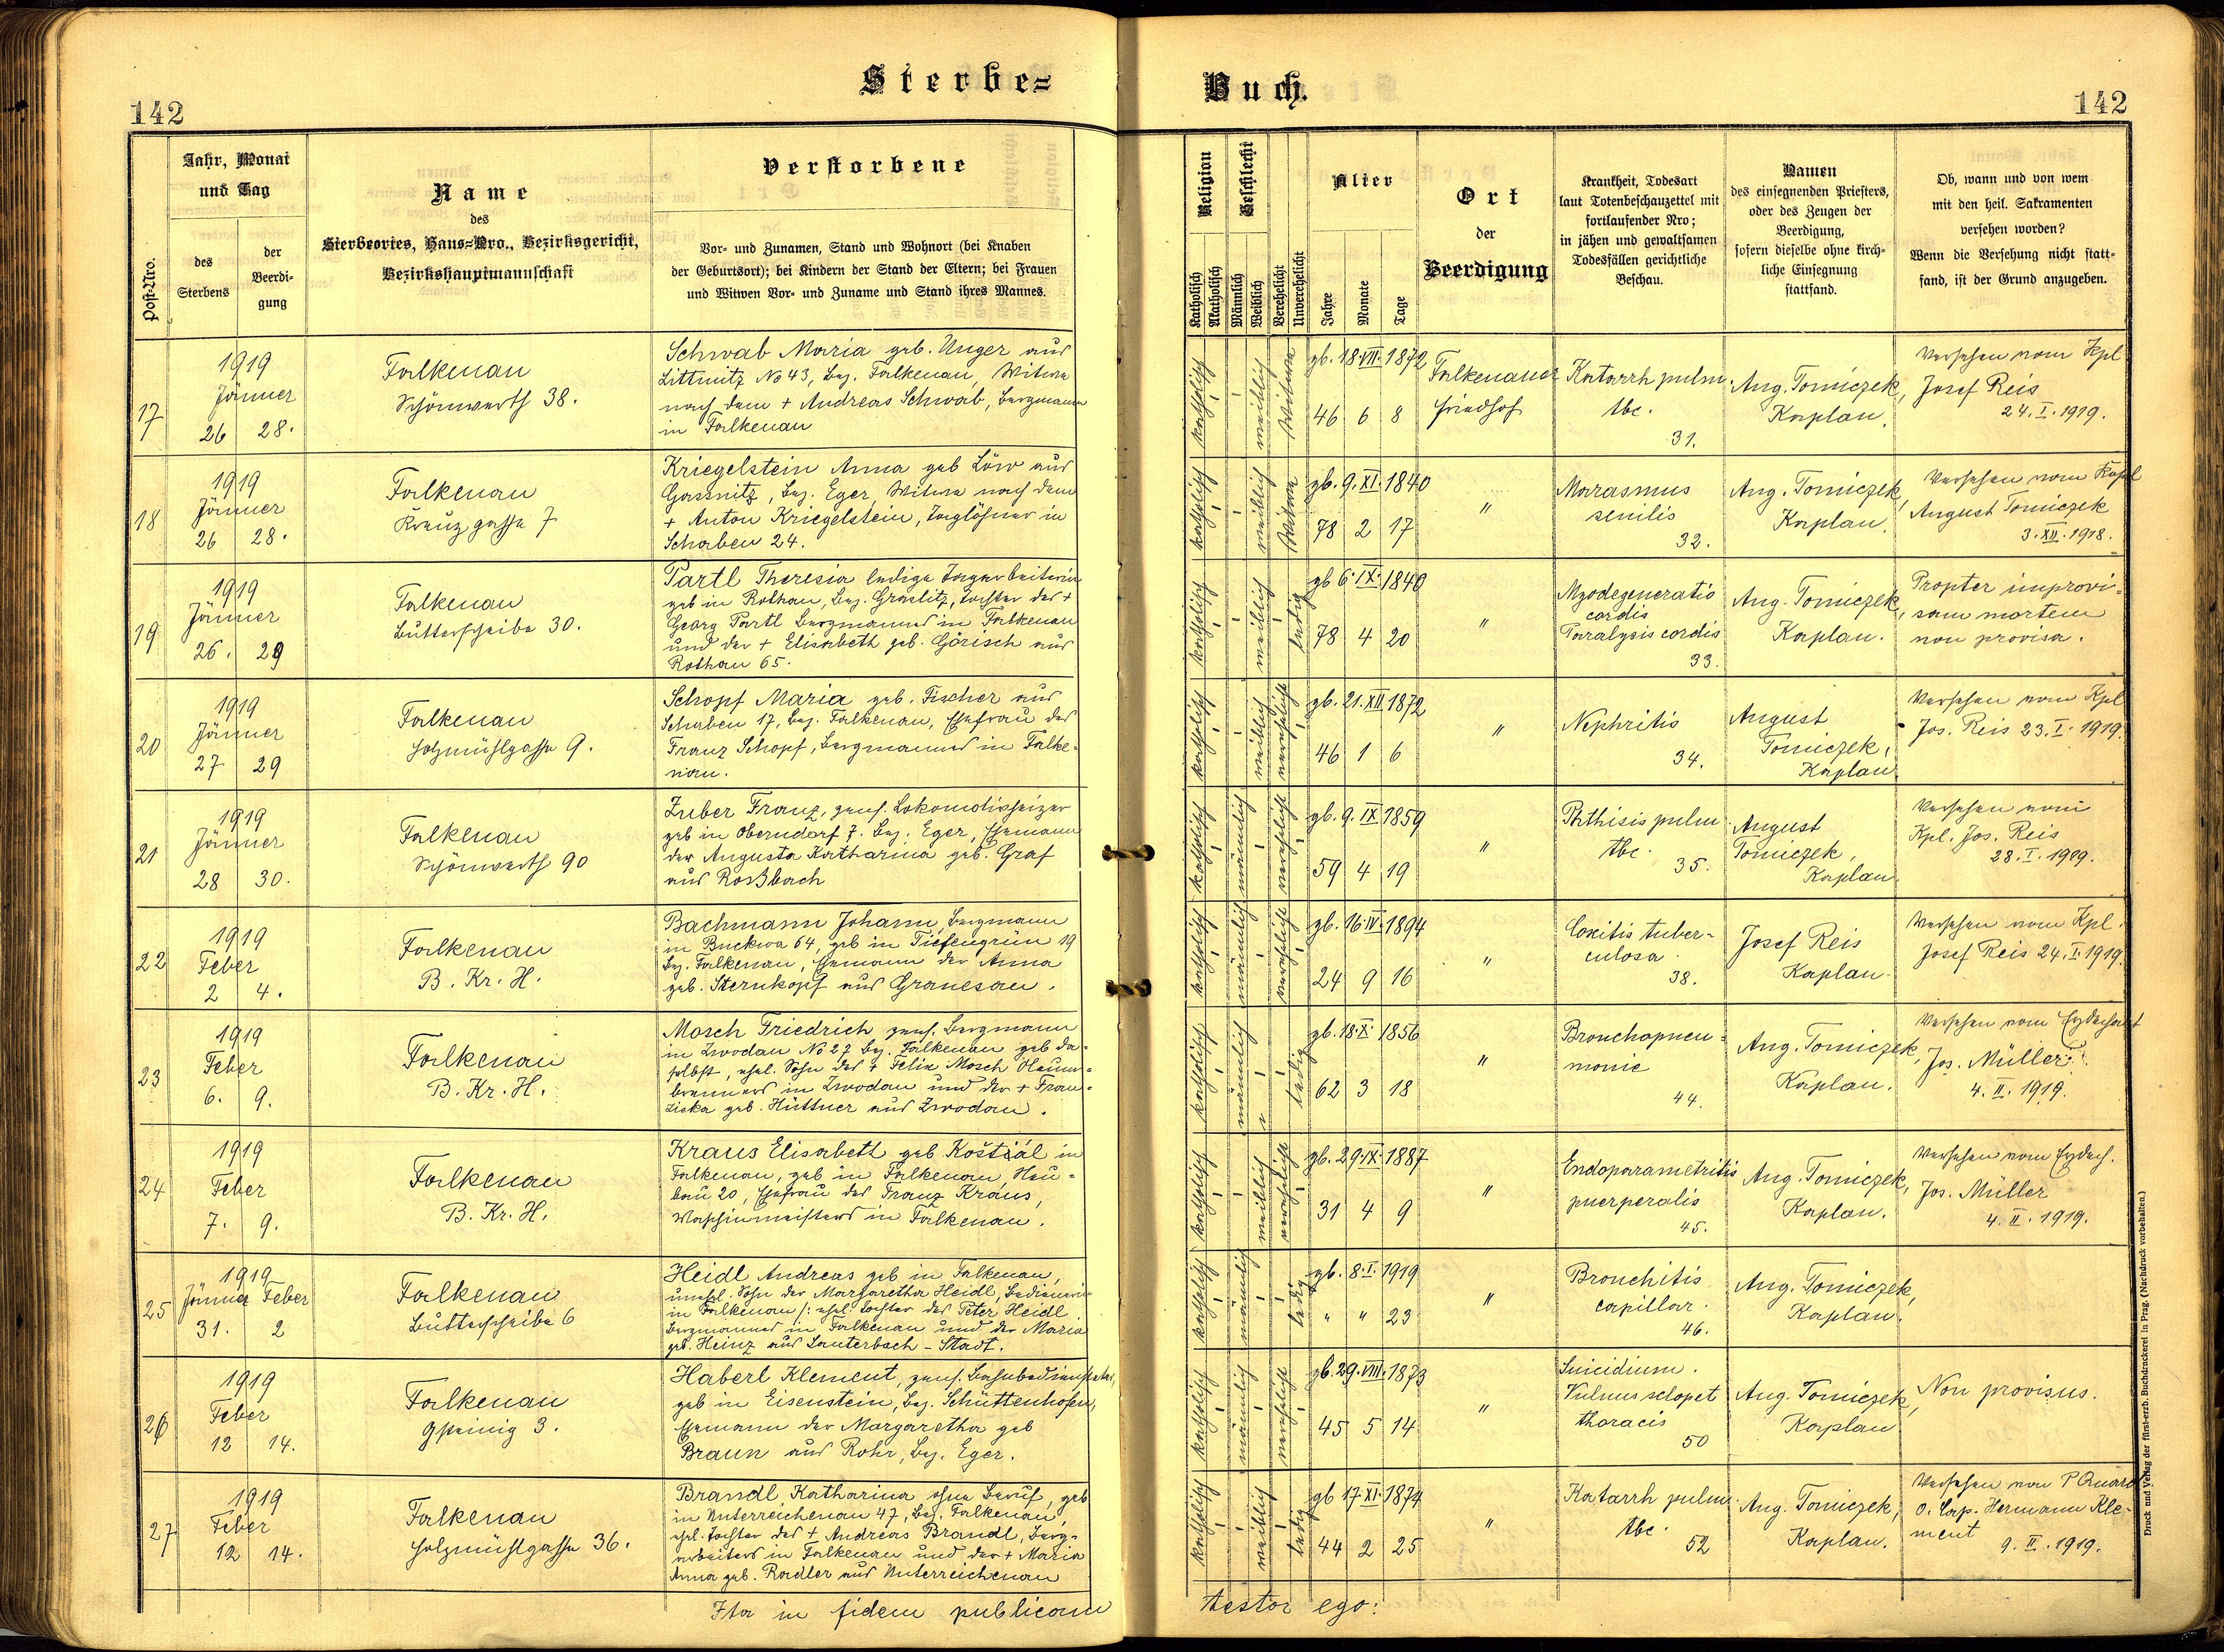 Sterbe= Buch.
142
142
Post-Nro.
Jahr, Monat
und Tag
des
Sterbens
der
Beerdi-
gung
Name
des
Sterbeortes, Haus=Nro., Bezirksgericht,
Bezirkshauptmannschaft
Verstorbene
Vor- und Zunamen, Stand und Wohnort (bei Knaben
der Geburtsort); bei Kindern der Stand der Eltern; bei Frauen
und Witwen Vor- und Zuname und Stand ihres Mannes.
Religion
Katholisch
Akatholisch
Geschlecht
Männlich
Weiblich
Verehelicht
Unverehelicht
Alter
Jahre
Monate
Tage
Ort
der
Beerdigung
Krankheit, Todesart
laut Totenbeschauzettel mit
fortlaufender Nro;
in jähen und gewaltsamen
Todesfällen gerichtliche
Beschau.
Namen
des einsegnenden Priesters,
oder des Zeugen der
Beerdigung,
sofern dieselbe ohne kirch-
liche Einsegnung
stattfand.
Ob, wann und von wem
mit den heil. Sakramenten
versehen worden?
Wenn die Versehung nicht statt-
fand, ist der Grund anzugeben.
17
1919
Jänner
26 28.
Falkenau
Schönwerth 38.
Schwab Maria geb. Unger aus
Littmitz No 43, Bez. Falkenau, Witwe
nach dem + Andreas Schwab, Bergmann
in Falkenau
katholisch
weiblich
Witwe
gb. 18.VII.1872
46 6 8
Falkenauer
Friedhof
Katarrh pulm.
tbc.
31.
Aug. Tomiczek,
Kaplan.
Versehen vom Kpl
Josef Reis
24.I.1919.
18
1919
Jänner
26 28.
Falkenau
Kreuzgasse 7
Kriegelstein Anna geb Löw aus
Gassnitz, Bez. Eger, Witwe nach dem
+ Anton Kriegelstein, Taglöhner in
Schaben 24.
katholisch
weiblich
Witwe
gb. 9.XI.1840
78 2 17
"
Marasmus
senilis
32.
Aug. Tomiczek,
Kaplan.
Versehen vom Kapl
August Tomiczek
3.XII.1918.
19
1919
Jänner
26. 29
Falkenau
Butterscheibe 30.
Partl Theresia ledige Tagarbeiterin
geb in Rothau, Bez. Graslitz, Tochter des +
Georg Partl Bergmannes in Falkenau
und der + Elisabeth geb. Görisch aus
Rothau 65.
katholisch
weiblich
ledig
gb 6.IX.1840
78 4 20
"
Myodegeneratio
cordis
Paralysis cordis
33.
Aug. Tomiczek,
Kaplan.
Propter improvi-
sam mortem
non provisa.
20
1919
Jänner
27 29
Falkenau
Holzmühlgasse 9.
Schopf Maria geb. Fischer aus
Schaben 17, Bez. Falkenau, Ehefrau des
Franz Schopf, Bergmannes in Falke-
nau.
katholisch
weiblich
verehelicht
gb. 21.XII.1872
46 1 6
"
Nephritis
34.
August
Tomiczek,
Kaplan
Versehen vom Kpl
Jos. Reis 23.I.1919.
21
1919
Jänner
28 30.
Falkenau
Schönwerth 90
Zuber Franz, pens. Lokomotivheizer
geb in Oberndorf 7. Bez. Eger, Ehemann
der Augusta Katharina geb. Graf
aus Roßbach
katholisch
männlich
verehelicht
gb. 9.IX.1859
59 4 19
"
Phthisis pulm
tbc.
35.
August
Tomiczek,
Kaplan.
Versehen vom
Kpl. Jos. Reis
28.I.1919.
22
1919
Feber
2 4.
Falkenau
B. Kr. H.
Bachmann Johann, Bergmann
in Buckwa 64, geb in Tiefengrün 19
Bez. Falkenau, Ehemann der Anna
geb. Sternkopf aus Granesau.
katholisch
männlich
verehelicht
gb. 16.IV.1894
24 9 16
"
Coxitis tuber-
culosa
38.
Josef Reis
Kaplan.
Versehen vom Kpl.
Josef Reis 24.I.1919.
23
1919
Feber
6. 9.
Falkenau
B. Kr. H.
Mosch Friedrich pens. Bergmann
in Zwodau No 27 Bez. Falkenau geb da-
selbst, ehel. Sohn des + Felix Mosch
in Zwodau und der + Fran-
ziska geb. Hüttner aus Zwodau.
katholisch
männlich
ledig
gb. 18.X.1856
62 3 18
"
Bronchopneu-
monie
44.
Aug. Tomiczek,
Kaplan.
Versehen vom Erzdechant
Jos. Müller
4.II.1919.
24
1919
Feber
7. 9.
Falkenau
B. Kr. H.
Kraus Elisabeth geb Koštiál in
Falkenau, geb in Falkenau, Neu-
bau 20, Ehefrau des Franz Kraus,
Maschinmeisters in Falkenau.
katholisch
weiblich
verehelicht
gb. 29.IX.1887
31 4 9
"
Endoparametritis
puerperalis
45.
Aug. Tomiczek,
Kaplan.
Versehen vom Erzdech.
Jos. Müller
4.II.1919.
25
1919
Jänner Feber
31. 2
Falkenau
Butterscheibe 6
Heidl Andreas geb in Falkenau,
unehel. Sohn der Margaretha Heidl, Bedienerin
in Falkenau /: ehel. Tochter des Peter Heidl
Bergmannes in Falkenau und der Maria
geb. Heinz aus Lauterbach-Stadt.
katholisch
männlich
ledig
gb. 8.I.1919
" " 23
"
Bronchitis
capillar.
46.
Aug. Tomiczek,
Kaplan.
26
1919
Feber
12 14.
Falkenau
Gsteinig 3.
Haberl Klement, pens. Bahnbediensteter,
geb in Eisenstein, Bez. Schüttenhofen,
Ehemann der Margaretha geb
Braun aus Rohr, Bez. Eger.
katholisch
männlich
verehelicht
gb. 29.VIII.1873
45 5 14
"
Suicidium.
Vulnus sclopet
thoracis
50
Aug. Tomiczek,
Kaplan
Non provisus.
27
1919
Feber
12 14.
Falkenau
Holzmühlgasse 36.
Brandl Katharina ohne Beruf, geb
in Unterreichenau 47, Bez. Falkenau,
ehel. Tochter des + Andreas Brandl, Berg-
arbeiters in Falkenau und der + Maria
Anna geb. Radler aus Unterreichenau
katholisch
weiblich
ledig
gb 17.XI.1874
44 2 25
"
Katarrh pulm.
tbc.
52
Aug. Tomiczek,
Kaplan.
Versehen von P Quard
O. Cap. Hermann Kle-
ment
9.II.1919.
Ita in fidem publicam testor ego:
Druck und Verlag der fürst-erzb. Buchdruckerei in Prag. (Nachdruck vorbehalten.)